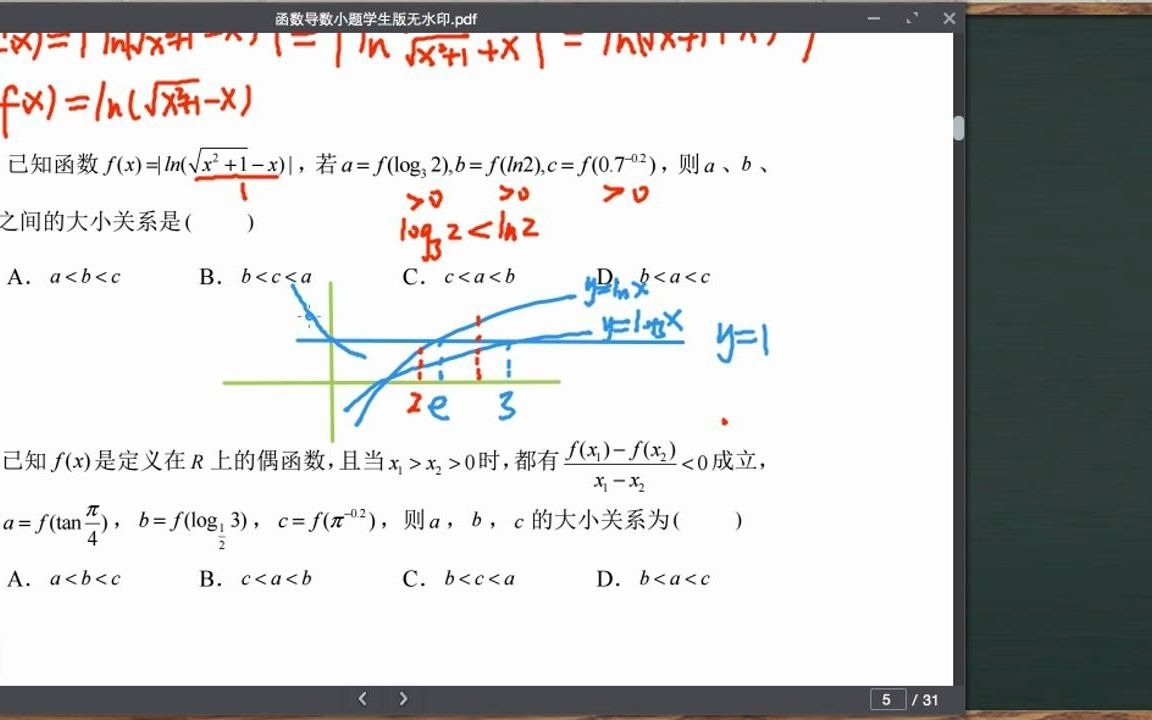 函数导数小题学生版无水印.pdf
f(x)=ln(√x²+1-x)
已知函数 f(x)=|ln(√x²+1-x)|,若a=f(log₃2),b=f(ln2),c=f(0.7^{-0.2}),则a、b、
1 >0 >0 >0
之间的大小关系是( )
log₃2<ln2
A. a<b<c B. b<c<a C. c<a<b D. b<a<c
y=lnx
y=log₃x
y=1
2 e 3
已知 f(x)是定义在 R 上的偶函数,且当 x₁>x₂>0时,都有 \frac{f(x₁)-f(x₂)}{x₁-x₂}<0成立,
a=f(tan\frac{π}{4}),b=f(log_{\frac{1}{2}}3),c=f(π^{-0.2}),则a,b,c的大小关系为( )
A. a<b<c B. c<a<b C. b<c<a D. b<a<c
5 / 31